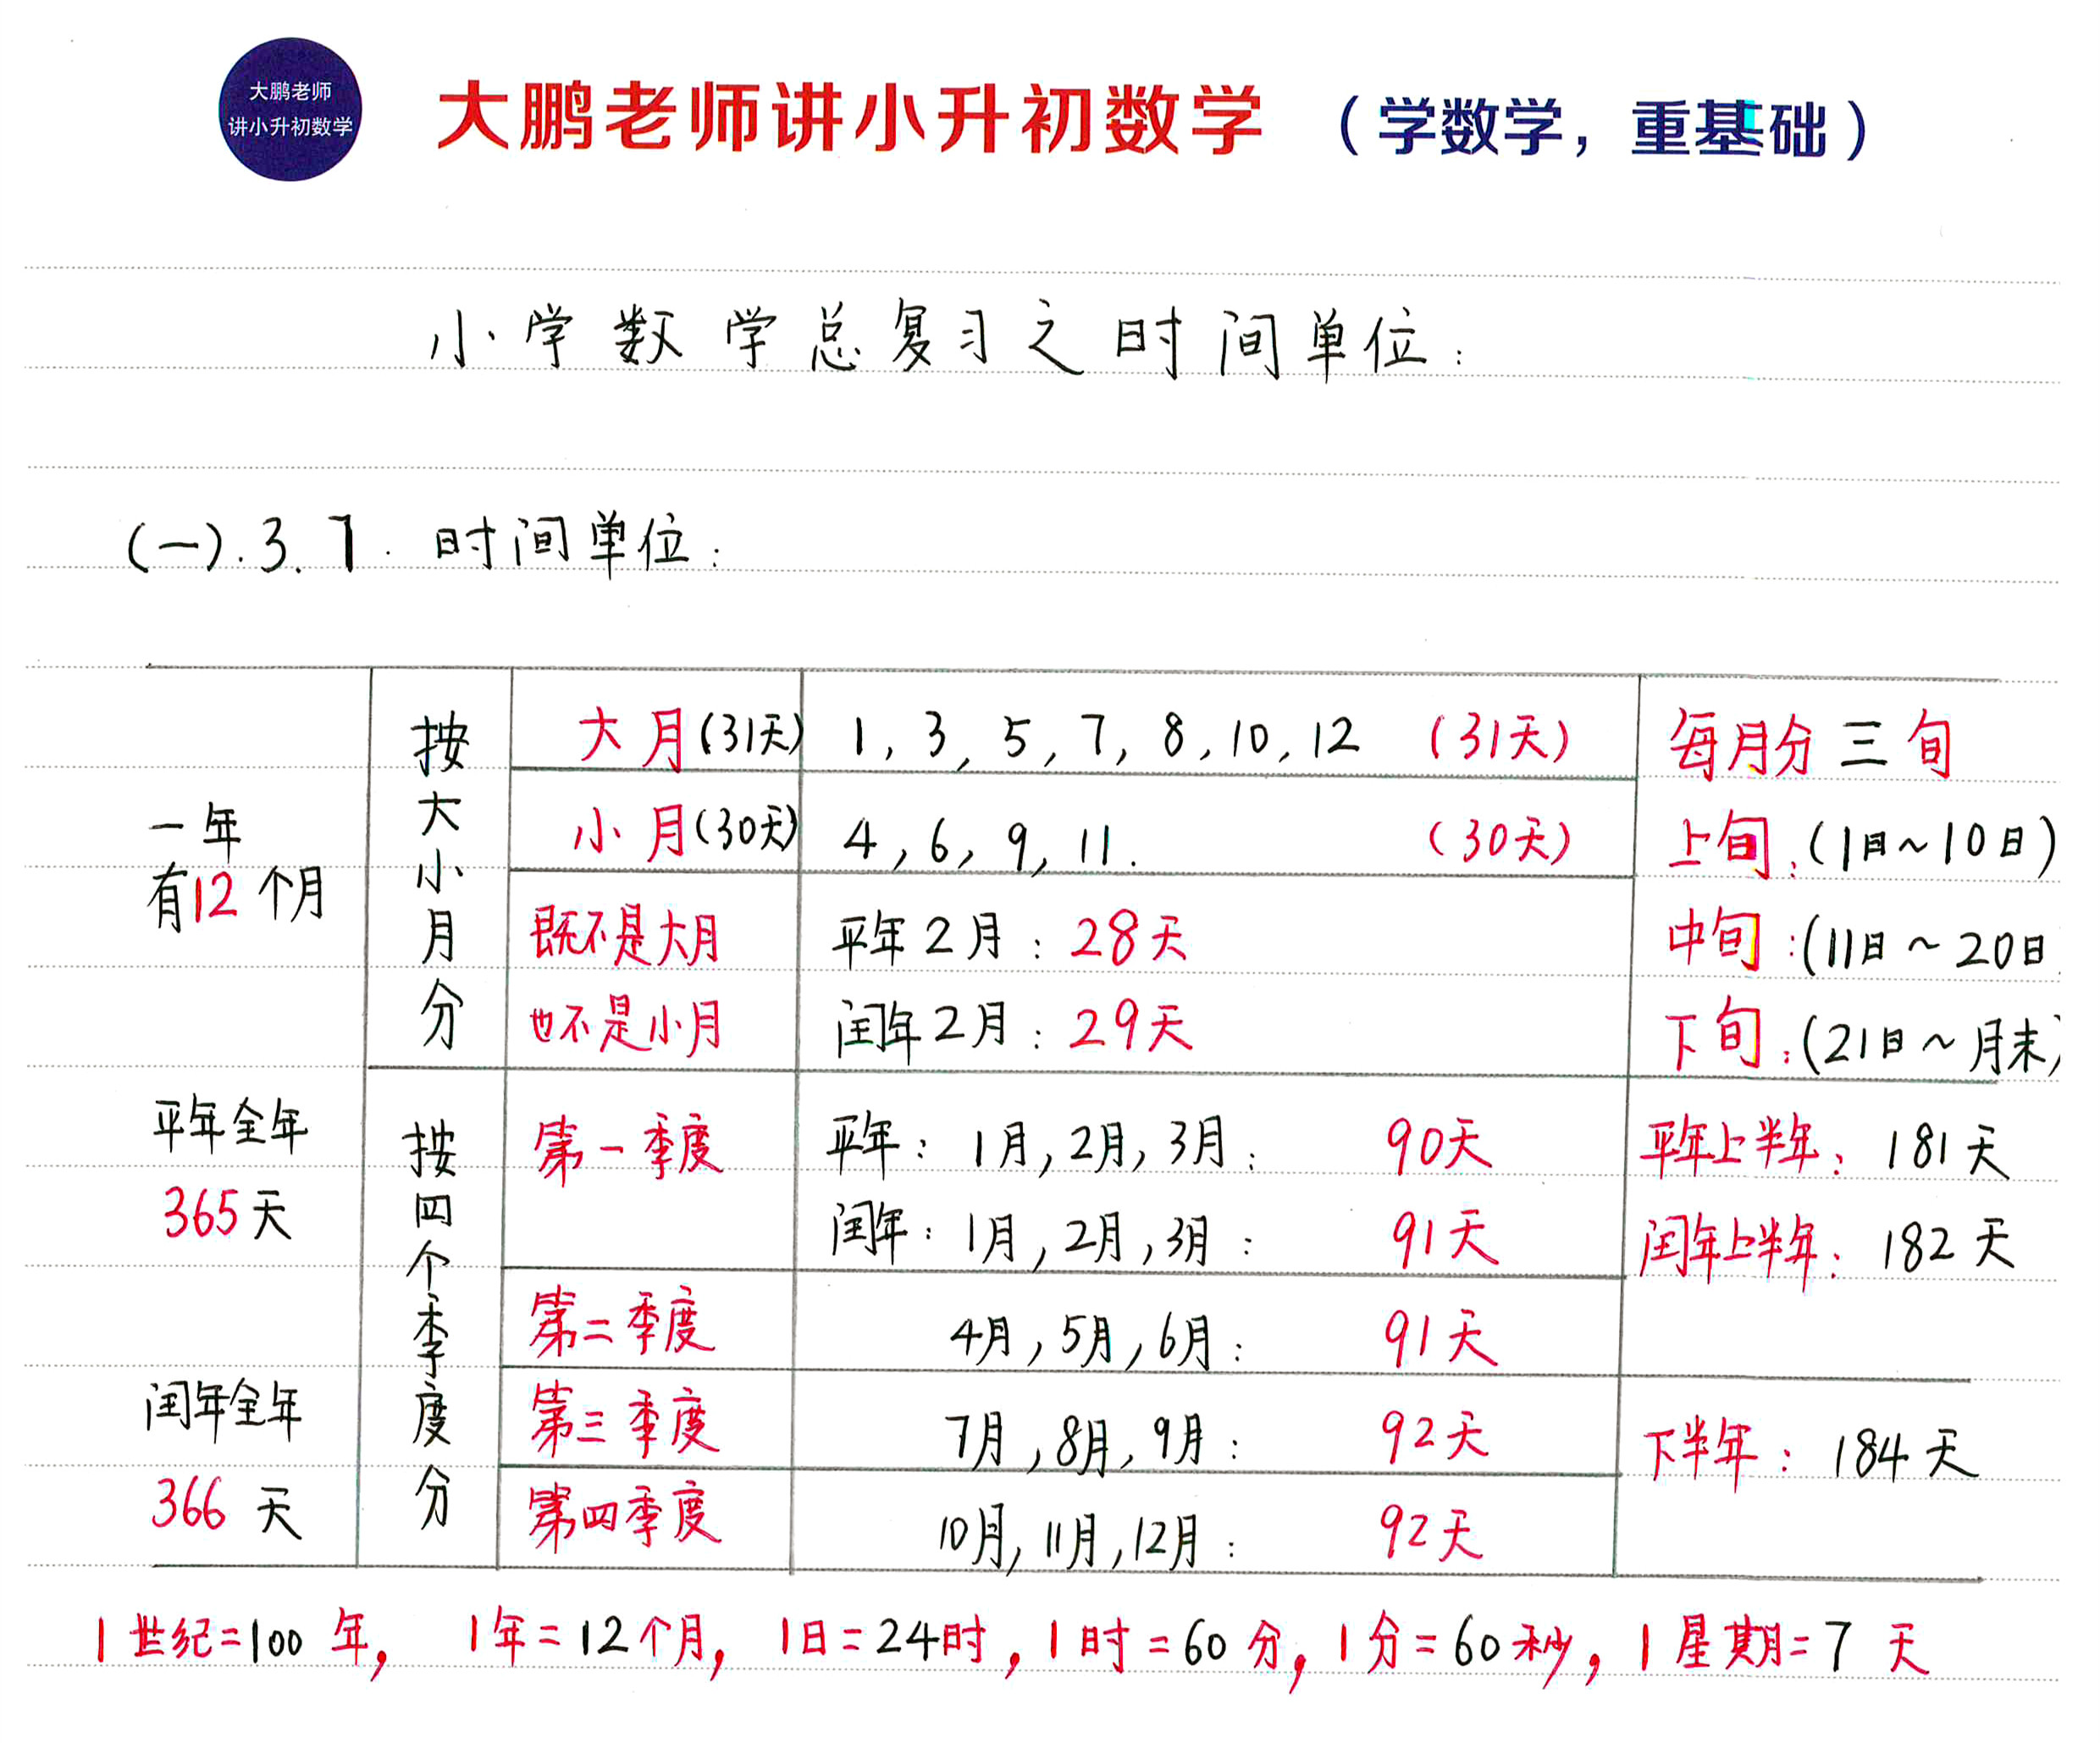 大鹏老师
讲小升初数学
大鹏老师讲小升初数学 (学数学,重基础)
小学数学总复习之时间单位:
(一).3.1. 时间单位:
一年
有12个月
平年全年
365天
闰年全年
366天
按大小月分
大月(31天) 1,3,5,7,8,10,12 (31天)
小月(30天) 4,6,9,11. (30天)
既不是大月 平年2月:28天
也不是小月 闰年2月:29天
每月分三旬
上旬:(1日~10日)
中旬:(11日~20日
下旬:(21日~月末)
按四个季度分
第一季度 平年:1月,2月,3月: 90天
闰年:1月,2月,3月: 91天
第二季度 4月,5月,6月: 91天
第三季度 7月,8月,9月: 92天
第四季度 10月,11月,12月: 92天
平年上半年:181天
闰年上半年:182天
下半年:184天
1世纪=100年, 1年=12个月, 1日=24时,1时=60分,1分=60秒,1星期=7天